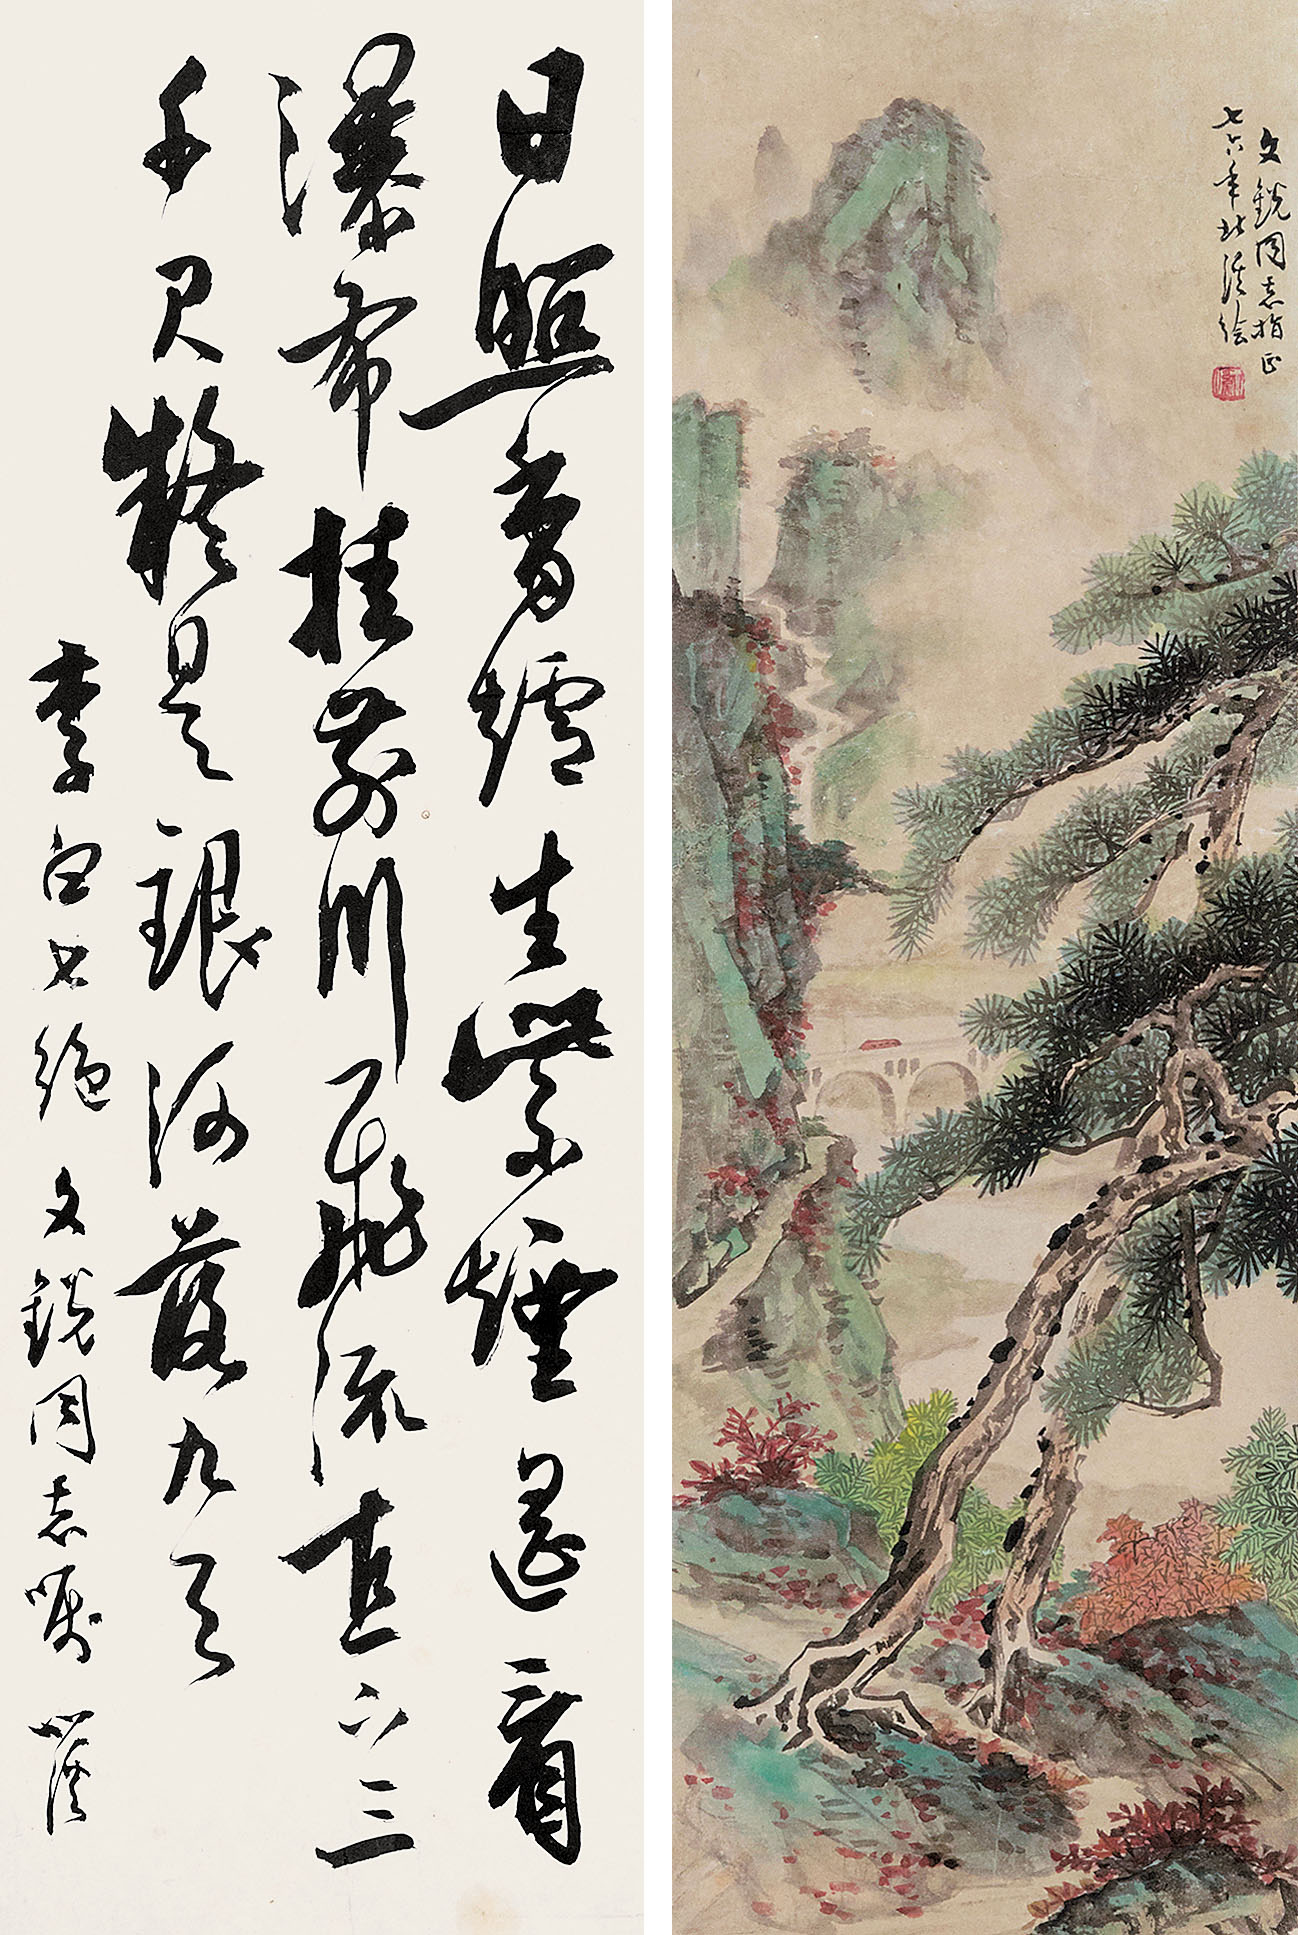 日照香爐生紫煙遥看
瀑布挂前川飛流直下三
千尺疑是銀河落九天
李白七絶 文鋭同志嘱 溪
文鋭同志指正
七六年北溪绘